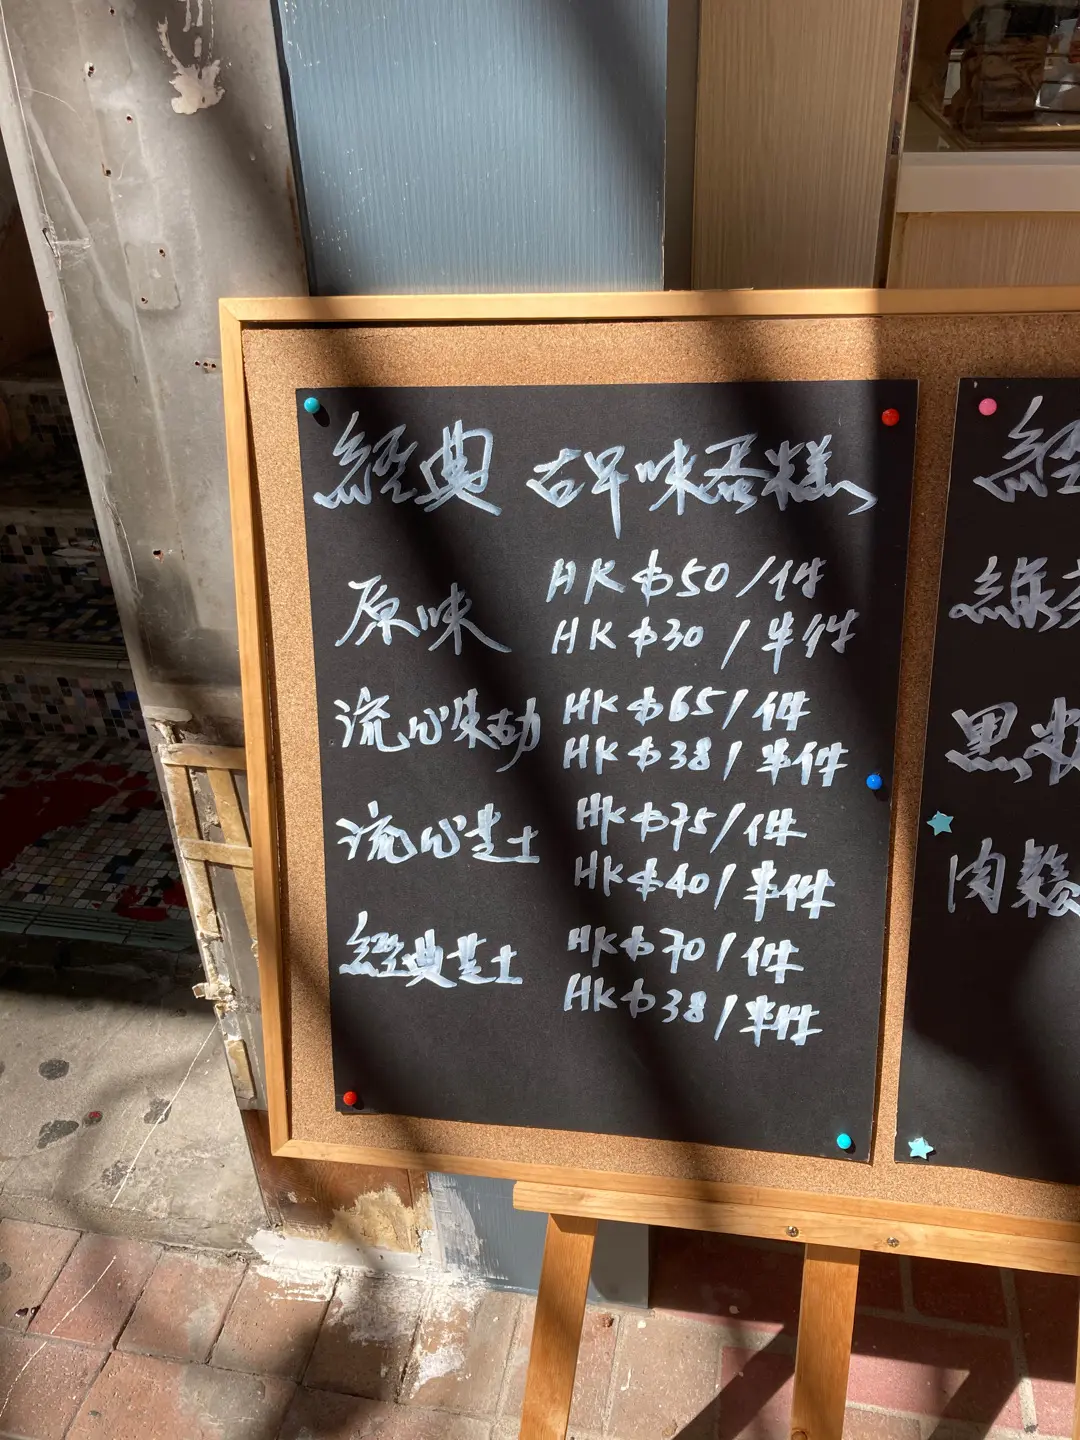 經典 古早味蛋糕
原味 HK$50/件
HK$30/半件
流心朱古力 HK$65/件
HK$38/半件
流心芝士 HK$75/件
HK$40/半件
經典芝士 HK$70/件
HK$38/半件
經
黑糖
肉鬆